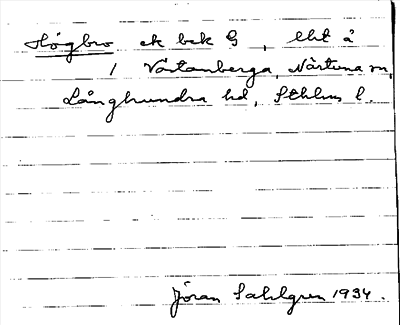 Högbro ek bek G, lht å
/ Västanberga, Närtuna sn,
Långhundra hd, Sthlms l.
Jöran Sahlgren 1934.